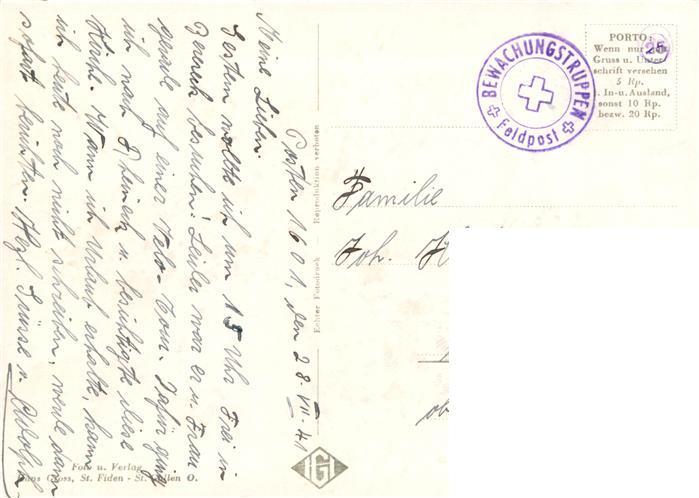 Posten 1601, den 28. VII. 41
Meine Lieben
Gestern wollte ich um 15 Uhr Frei in
besuchen. Leider war er u. Frau
gerade auf einer Velo-Tour. Dafür ging
ich nach Rheineck u. besichtigte diese
Kirche. Wann ich Urlaub erhalte, kann
ich heute noch nicht schreiben, werde dann
sofort berichten. Hzl. Grüsse v. Adolph.
Foto u. Verlag
Hans Gross, St. Fiden - St. Gallen O.
Echter Fotodruck — Reproduktion verboten
IGI
BEWACHUNGSTRUPPEN
Feldpost
25
PORTO:
Wenn nur mit
Gruss u. Unter-
schrift versehen
5 Rp.
In- u. Ausland,
sonst 10 Rp.
bezw. 20 Rp.
Familie
Joh.
ob